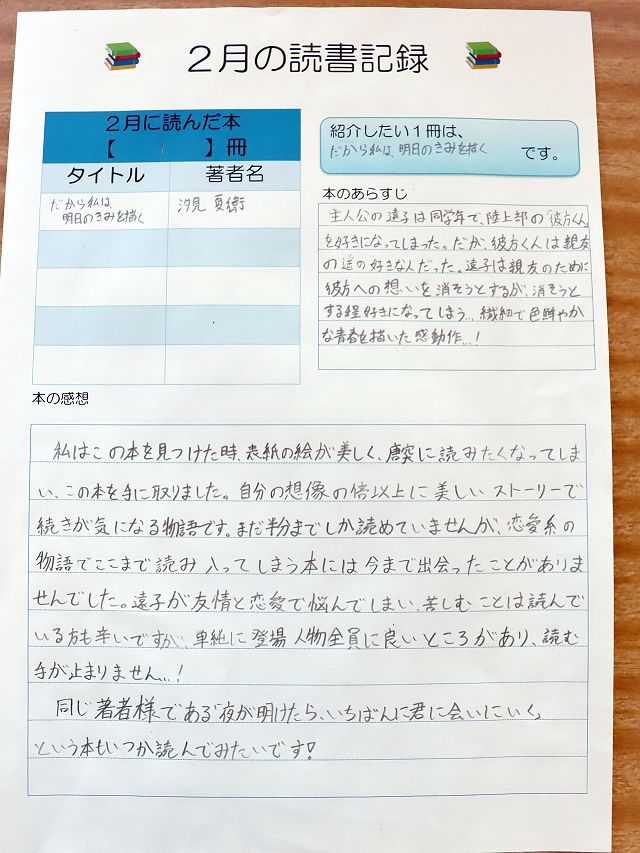 2月の読書記録
2月に読んだ本
【 1 】冊
タイトル 著者名
だから私は
明日のきみを描く
汐見 夏衛
紹介したい1冊は、
だから私は、明日のきみを描く
です。
本のあらすじ
主人公の遠子は同学年で、陸上部の「彼方くん」
を好きになってしまった。だが、彼方くんは親友
の遥の好きな人だった。遠子は親友のために
彼方への想いを消そうとするが、消そうと
する程好きになってしまう...繊細で色鮮やか
な青春を描いた感動作...!
本の感想
私はこの本を見つけた時、表紙の絵が美しく、唐突に読みたくなってしま
い、この本を手に取りました。自分の想像の倍以上に美しいストーリーで
続きが気になる物語です。まだ半分までしか読めていませんが、恋愛系の
物語でここまで読み入ってしまう本には今まで出会ったことがありま
せんでした。遠子が友情と恋愛で悩んでしまい、苦しむことは読んで
いる方も辛いですが、単純に登場人物全員に良いところがあり、読む
手が止まりません...!
同じ著者様である「夜が明けたら、いちばんに君に会いにいく」
という本もいつか読んでみたいです!